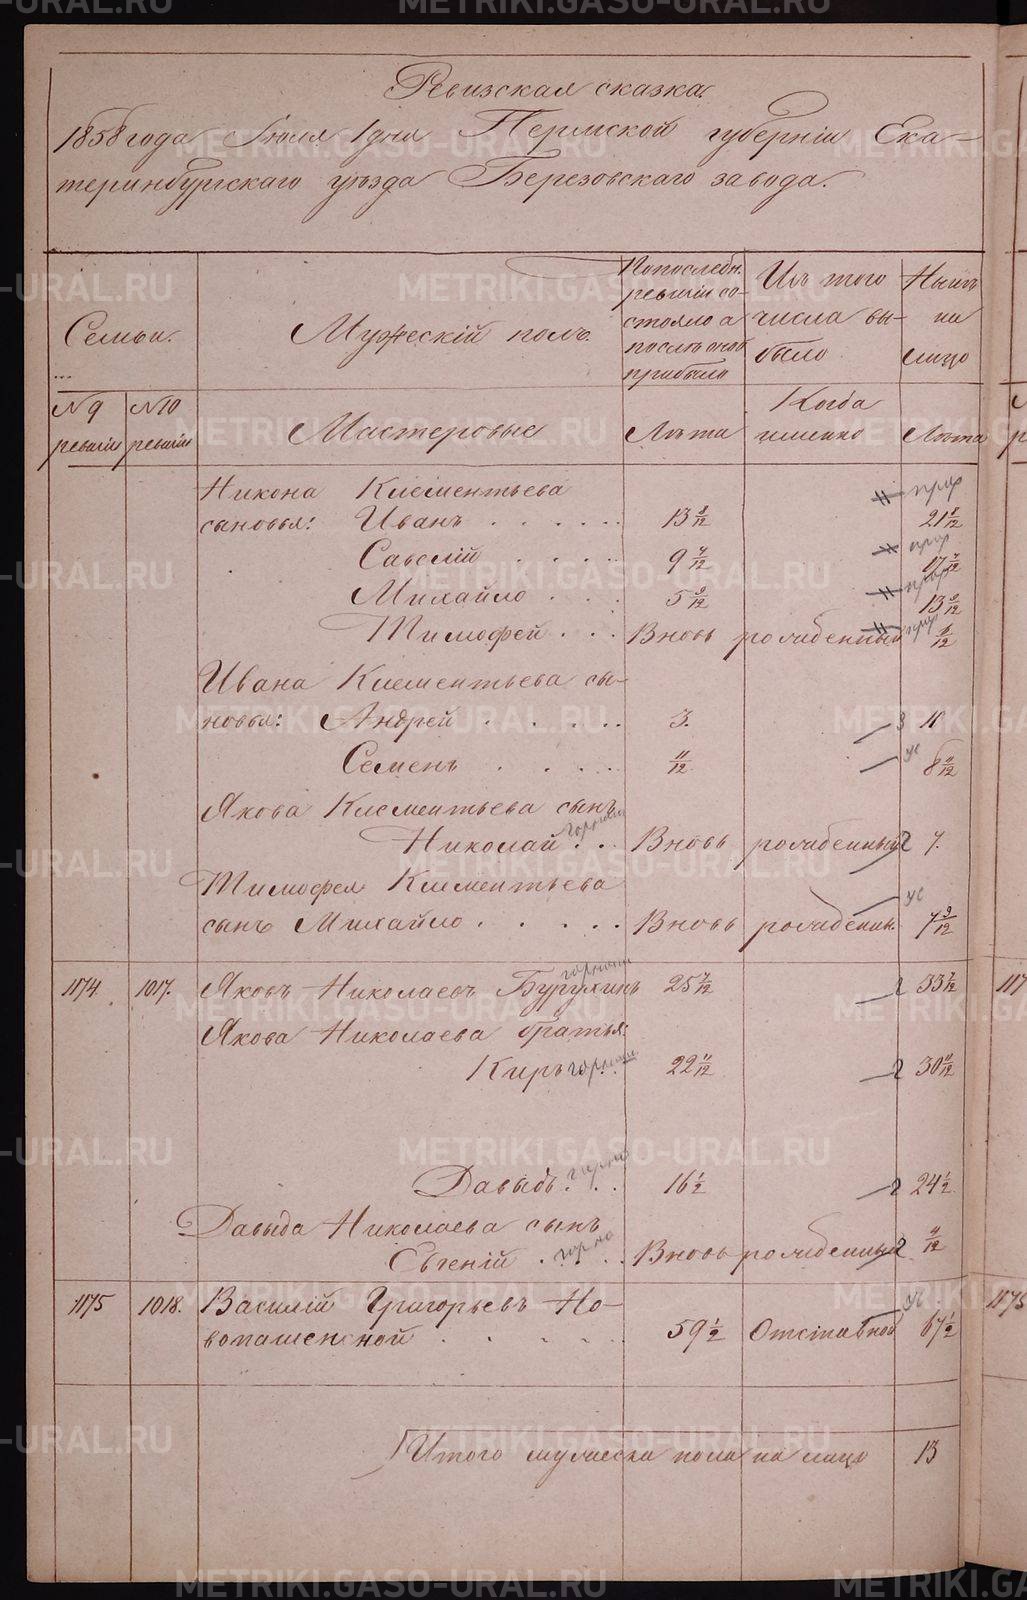 Ревизская сказка.
1858 года Июля 1 дня Пермской губернiи Ека-
теринбургскаго уѣзда Березовскаго завода.
Семьи.
Мужескiй полъ.
По последн. ревизiи со- стояло а послѣ оной прибыло
Изъ того числа вы- было
Нынѣ на лицо
№ 9 ревизiи
№ 10 ревизiи
Мастеровые
Лѣта
Когда именно
Лѣта
Никона Клементьева
сыновья: Иванъ 13 8/12 21 8/12
Савелiй 9 7/12 17 7/12
Михайло 5 9/12 13 9/12
Тимофей Вновь рожденный /12
Ивана Клементьева сы-
новья: Андрей 3. 3 11
Семенъ 11/12 8 11/12
Якова Клементьева сынъ
Николай Вновь рожденный 2 7.
Тимофея Клементьева
сынъ Михайло Вновь рожденн. 7 9/12
1174 1017. Яковъ Николаевъ Бугухинъ 25 7/12 2 33 7/12
Якова Николаева братья:
Киръ 22 11/12 2 30 11/12
Давыдъ 16 1/2 2 24 1/2
Давыда Николаева сынъ
Евгенiй Вновь рожденный 2 /12
1175 1018. Василiй Григорьевъ Но-
вопашенской 59 1/2 Отставной 67 1/2
Итого мужеска пола на лицо 13
117
1175
METRIKI.GASO-URAL.RU